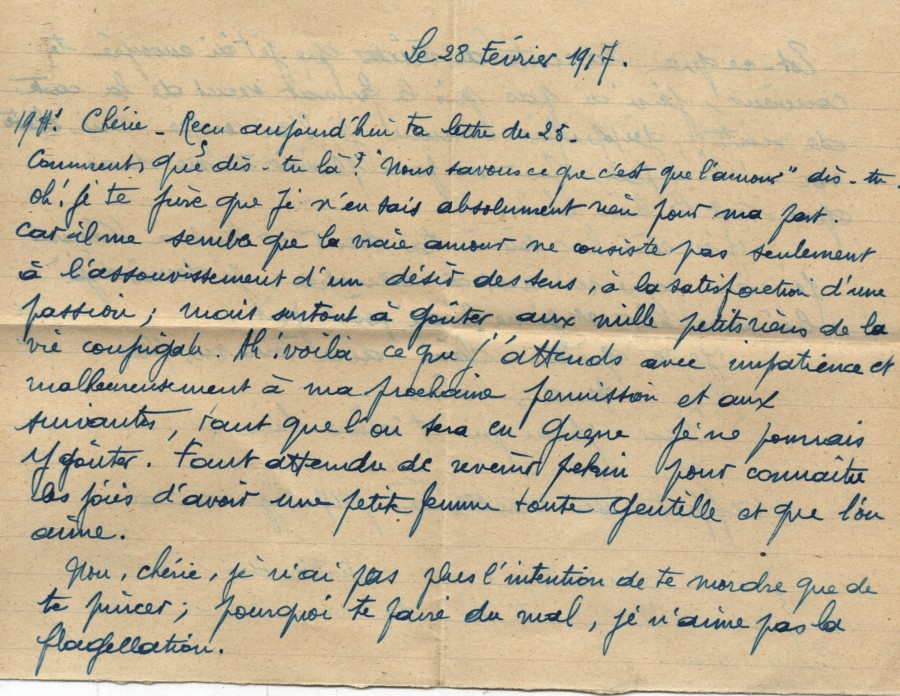 Le 28 Février 1917.
19 H. Chérie - Reçu aujourd'hui ta lettre du 25.
Comment, que dès - tu là ? "Nous savons ce que c'est que l'amour" dis - tu.
oh! je te jure que je n'en sais absolument rien pour ma part.
car il me semble que la vraie amour ne consiste pas seulement
à l'assouvissement d'un désir des sens, à la satisfaction d'une
passion ; mais surtout à goûter aux mille petits riens de la
vie conjugale. Ah! voilà ce que j'attends avec impatience et
malheureusement à ma prochaine permission et aux
suivantes, tant que l'on sera en guerre je ne pourrais
y goûter. Faut attendre de revenir pekin pour connaître
les joies d'avoir une petite femme toute gentille et que l'on
aime.
Non, chérie, je n'ai pas plus l'intention de te mordre que de
te pincer ; pourquoi te faire du mal, je n'aime pas la
flagellation.